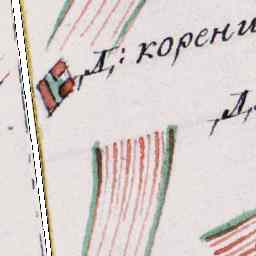 ,Д,: корени
,Д,